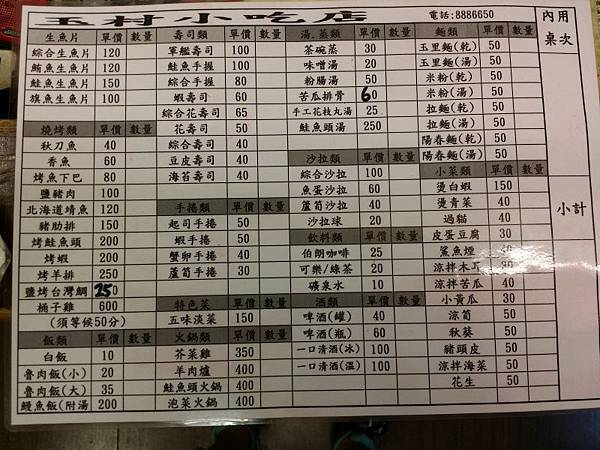 玉村小吃店 電話:8886650 內用
桌次
小計
生魚片 單價 數量
綜合生魚片 120
鮪魚生魚片 120
鮭魚生魚片 150
旗魚生魚片 100
燒烤類 單價 數量
秋刀魚 40
香魚 60
烤魚下巴 80
鹽豬肉 100
北海道靖魚 120
豬肋排 150
烤鮭魚頭 200
烤蝦 200
烤羊排 250
鹽烤台灣鯛 250
桶子雞 600
(須等候50分)
飯類 單價 數量
白飯 10
魯肉飯(小) 20
魯肉飯(大) 35
鰻魚飯(附湯 200
壽司類 單價 數量
軍艦壽司 100
鮭魚手握 100
綜合手握 80
蝦壽司 60
綜合花壽司 65
花壽司 50
綜合壽司 40
豆皮壽司 40
海苔壽司 40
手捲類 單價 數量
起司手捲 50
蝦手捲 50
蟹卵手捲 40
蘆筍手捲 30
特色菜 單價 數量
五味淡菜 150
火鍋類 單價 數量
芥菜雞 350
羊肉爐 400
鮭魚頭火鍋 400
泡菜火鍋 400
湯.蒸類 單價 數量
茶碗蒸 30
味噌湯 20
粉腸湯 50
苦瓜排骨 60
手工花枝丸湯 25
鮭魚頭湯 250
沙拉類 單價 數量
綜合沙拉 100
魚蛋沙拉 60
蘆筍沙拉 40
沙拉球 20
飲料類 單價 數量
伯朗咖啡 25
可樂/綠茶 20
礦泉水 10
酒類 單價 數量
啤酒(罐) 40
啤酒(瓶) 60
一口清酒(冰) 100
一口清酒(溫) 100
麵類 單價 數量
玉里麵(乾) 50
玉里麵(湯) 50
米粉(乾) 50
米粉(湯) 50
拉麵(乾) 50
拉麵(湯) 50
陽春麵(乾) 50
陽春麵(湯) 50
小菜類 單價 數量
燙白蝦 150
燙青菜 40
過貓 40
皮蛋豆腐 30
鯊魚煙
涼拌木工 30
涼拌苦瓜 40
小黃瓜 30
涼筍 50
秋葵 50
豬頭皮 50
涼拌海菜 50
花生 50